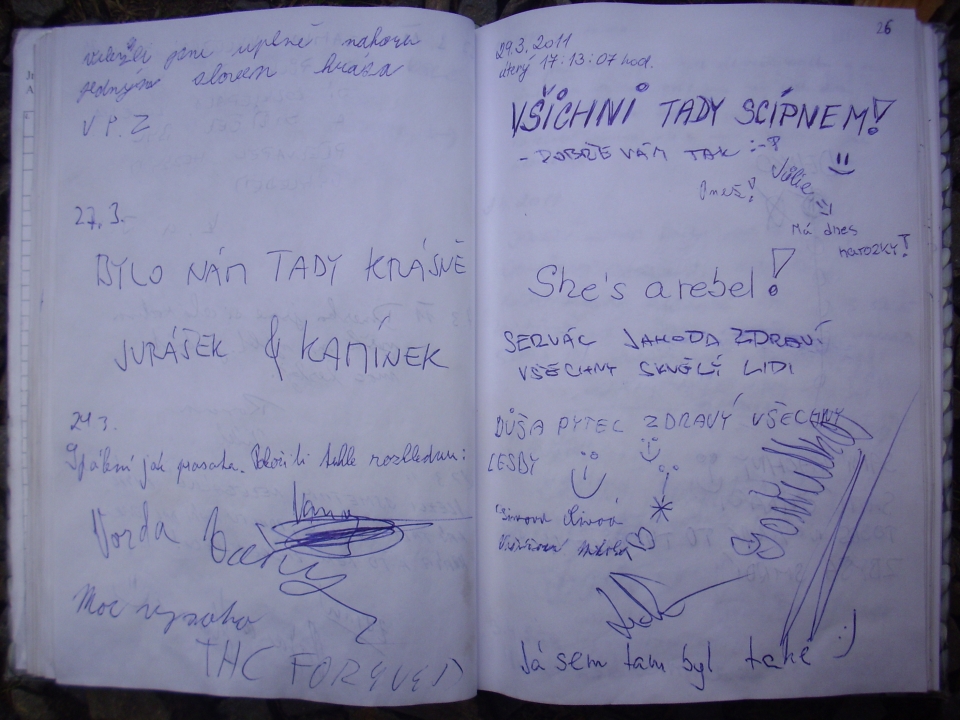 jsme úplně nahoře
jedným slovem hrůza
V P. Z.
27. 3.
BYLO NÁM TADY KRÁSNĚ
JURÁŠEK & KAMÍNEK
29 3.
jak prasata. tuhle rozhlednu:
Vorda
Moc vysoko
THC FOREVER
26
29. 3. 2011
úterý 17:13:07 hod.
VŠICHNI TADY SCÍPNEM!
- DOBŘE VÁM TAK :-P
Julie =)
Má dnes
narozky!
She's a rebel!
SERVÁC JAHODA ZDRAVÍ
VŠECHNY SKVĚLÍ LIDI
DŮŠA PYTEL ZDRAVÝ VŠECHNY
LESBY
Já sem tam byl také :)